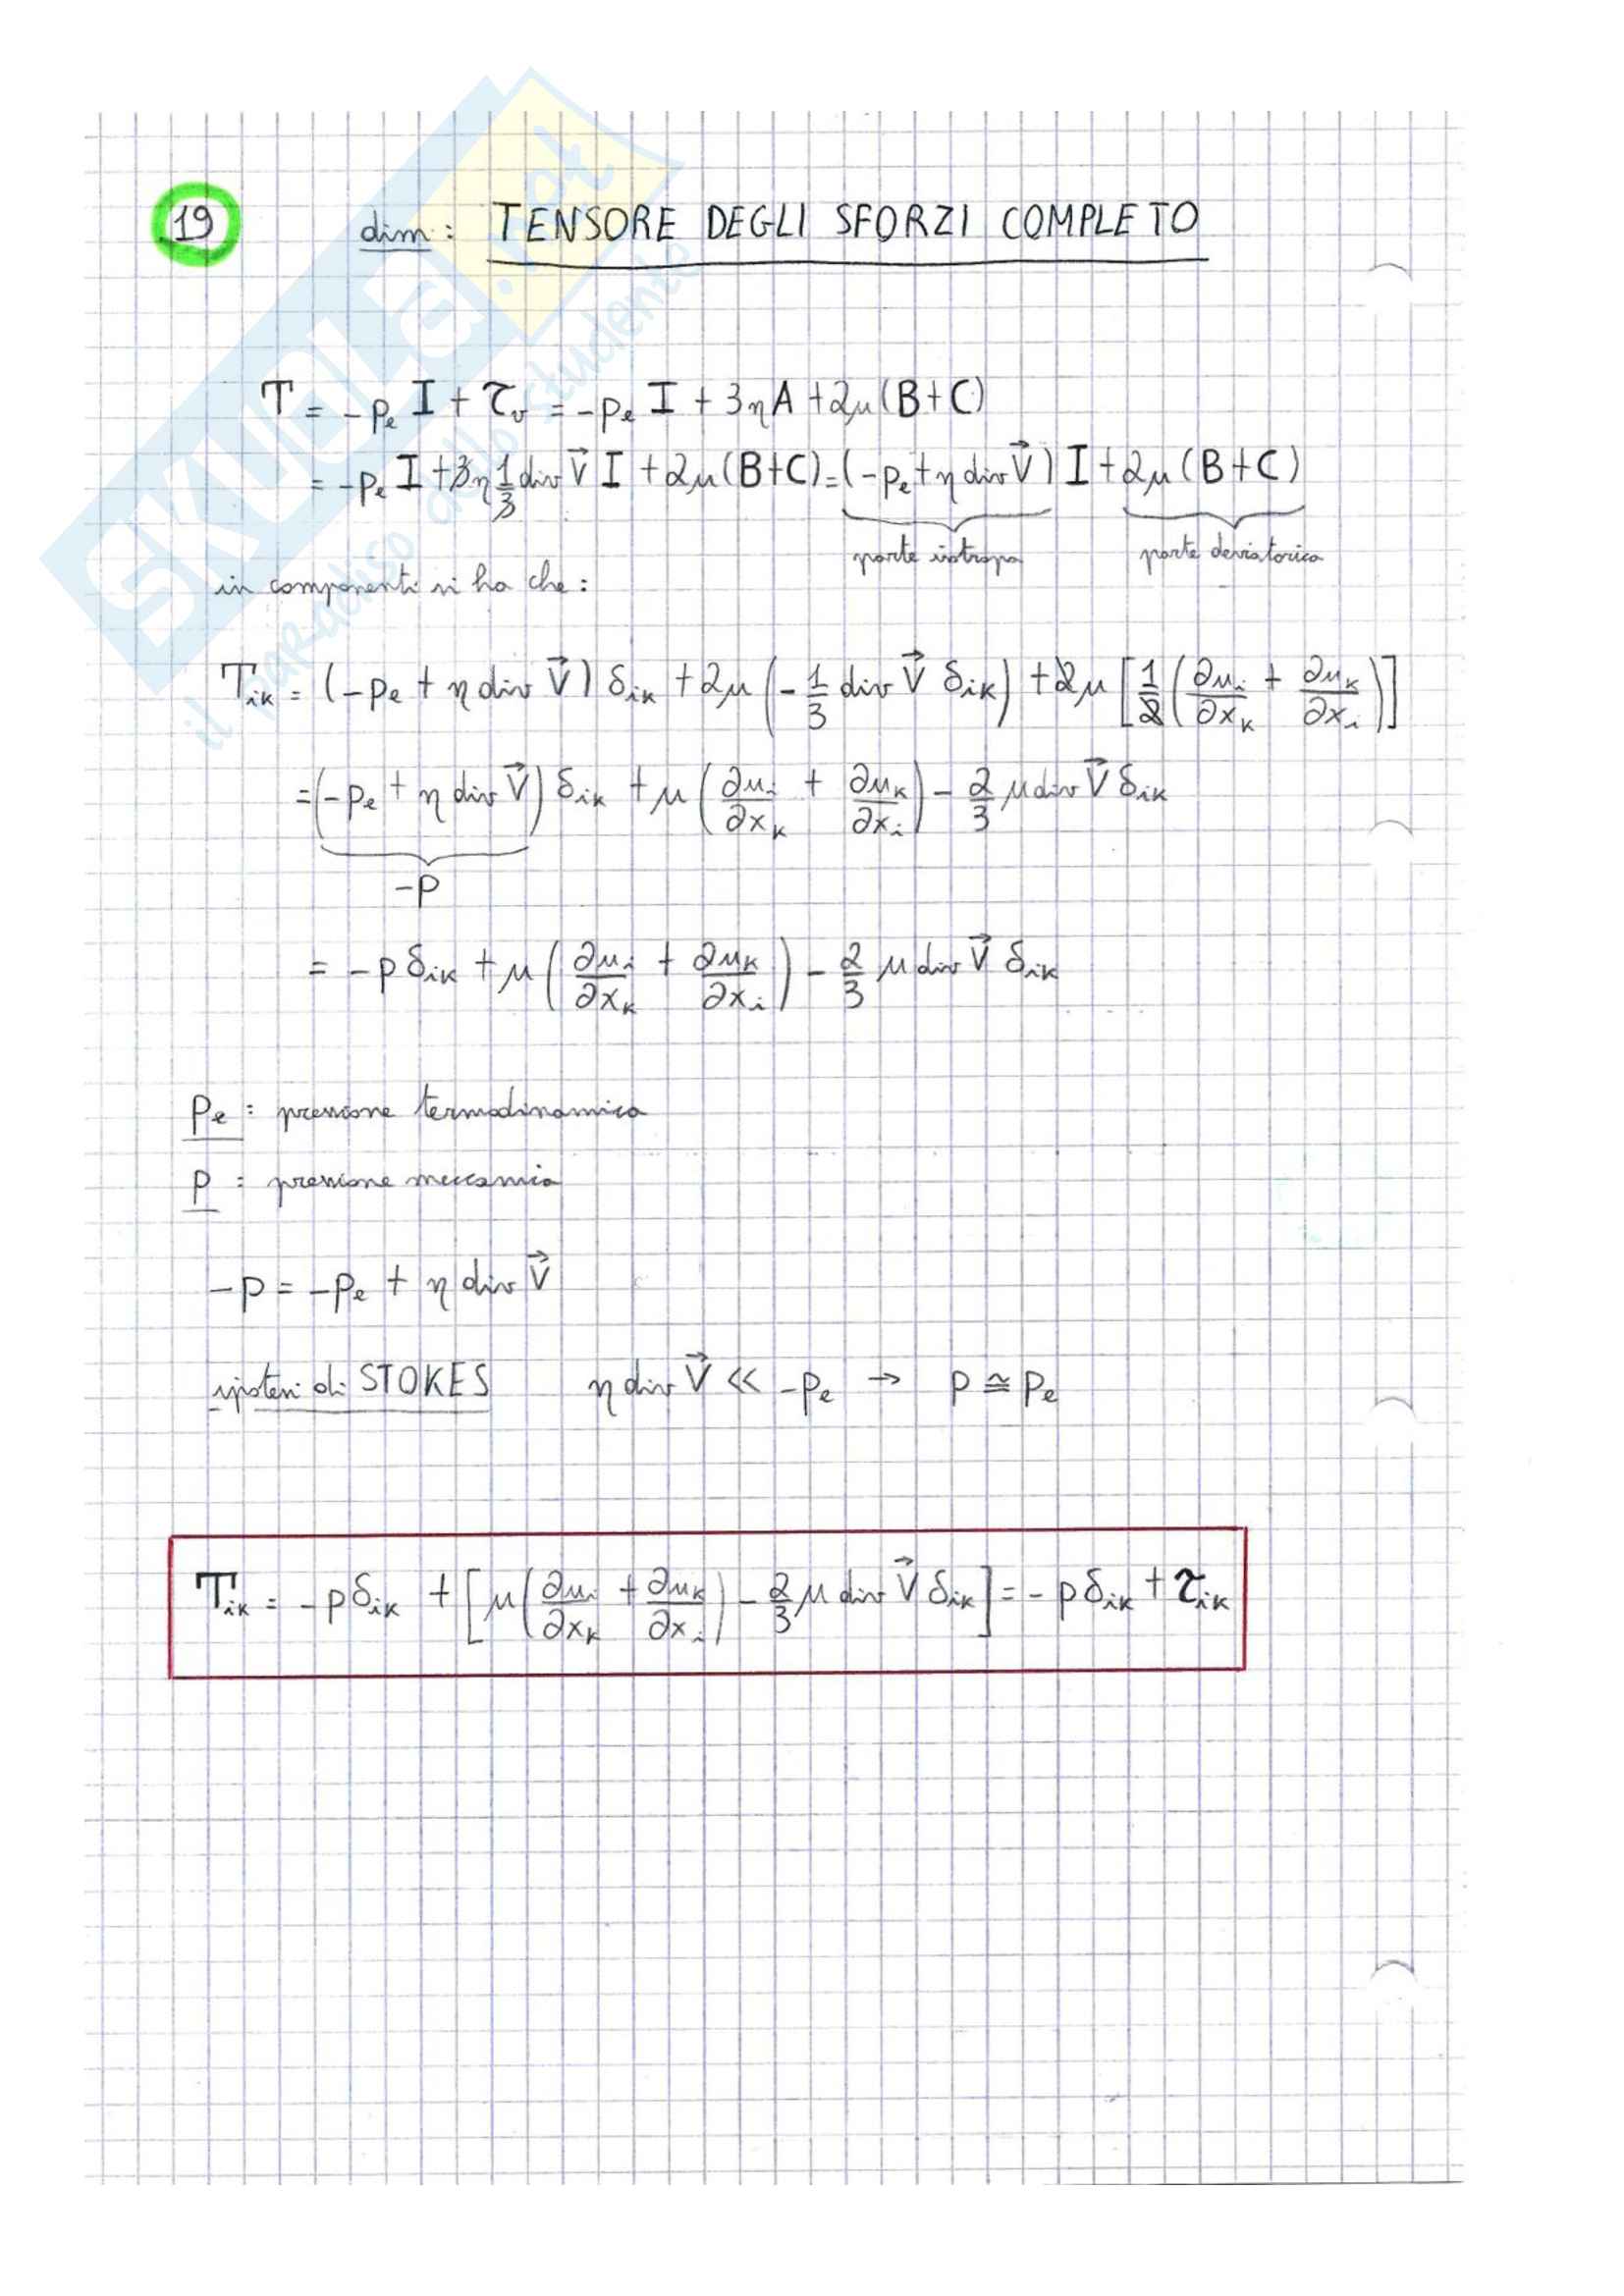 19
dim: TENSORE DEGLI SFORZI COMPLETO
SKUOLA.net
il paradiso dello studente
T = -pₑ I + τᵥ = -pₑ I + 3ηA + 2μ(B+C)
= -pₑ I + 3η 1/3 div V⃗ I + 2μ(B+C) = (-pₑ + η div V⃗) I + 2μ(B+C)
parte isotropa parte deviatorica
in componenti si ha che:
Tᵢₖ = (-pₑ + η div V⃗) δᵢₖ + 2μ (-1/3 div V⃗ δᵢₖ) + 2μ [1/2 (∂uᵢ/∂xₖ + ∂uₖ/∂xᵢ)]
= (-pₑ + η div V⃗) δᵢₖ + μ (∂uᵢ/∂xₖ + ∂uₖ/∂xᵢ) - 2/3 μ div V⃗ δᵢₖ
-p
= -p δᵢₖ + μ (∂uᵢ/∂xₖ + ∂uₖ/∂xᵢ) - 2/3 μ div V⃗ δᵢₖ
pₑ : pressione termodinamica
p : pressione meccanica
-p = -pₑ + η div V⃗
ipotesi di STOKES η div V⃗ << -pₑ → p ≅ pₑ
Tᵢₖ = -p δᵢₖ + [μ (∂uᵢ/∂xₖ + ∂uₖ/∂xᵢ) - 2/3 μ div V⃗ δᵢₖ] = -p δᵢₖ + τᵢₖ